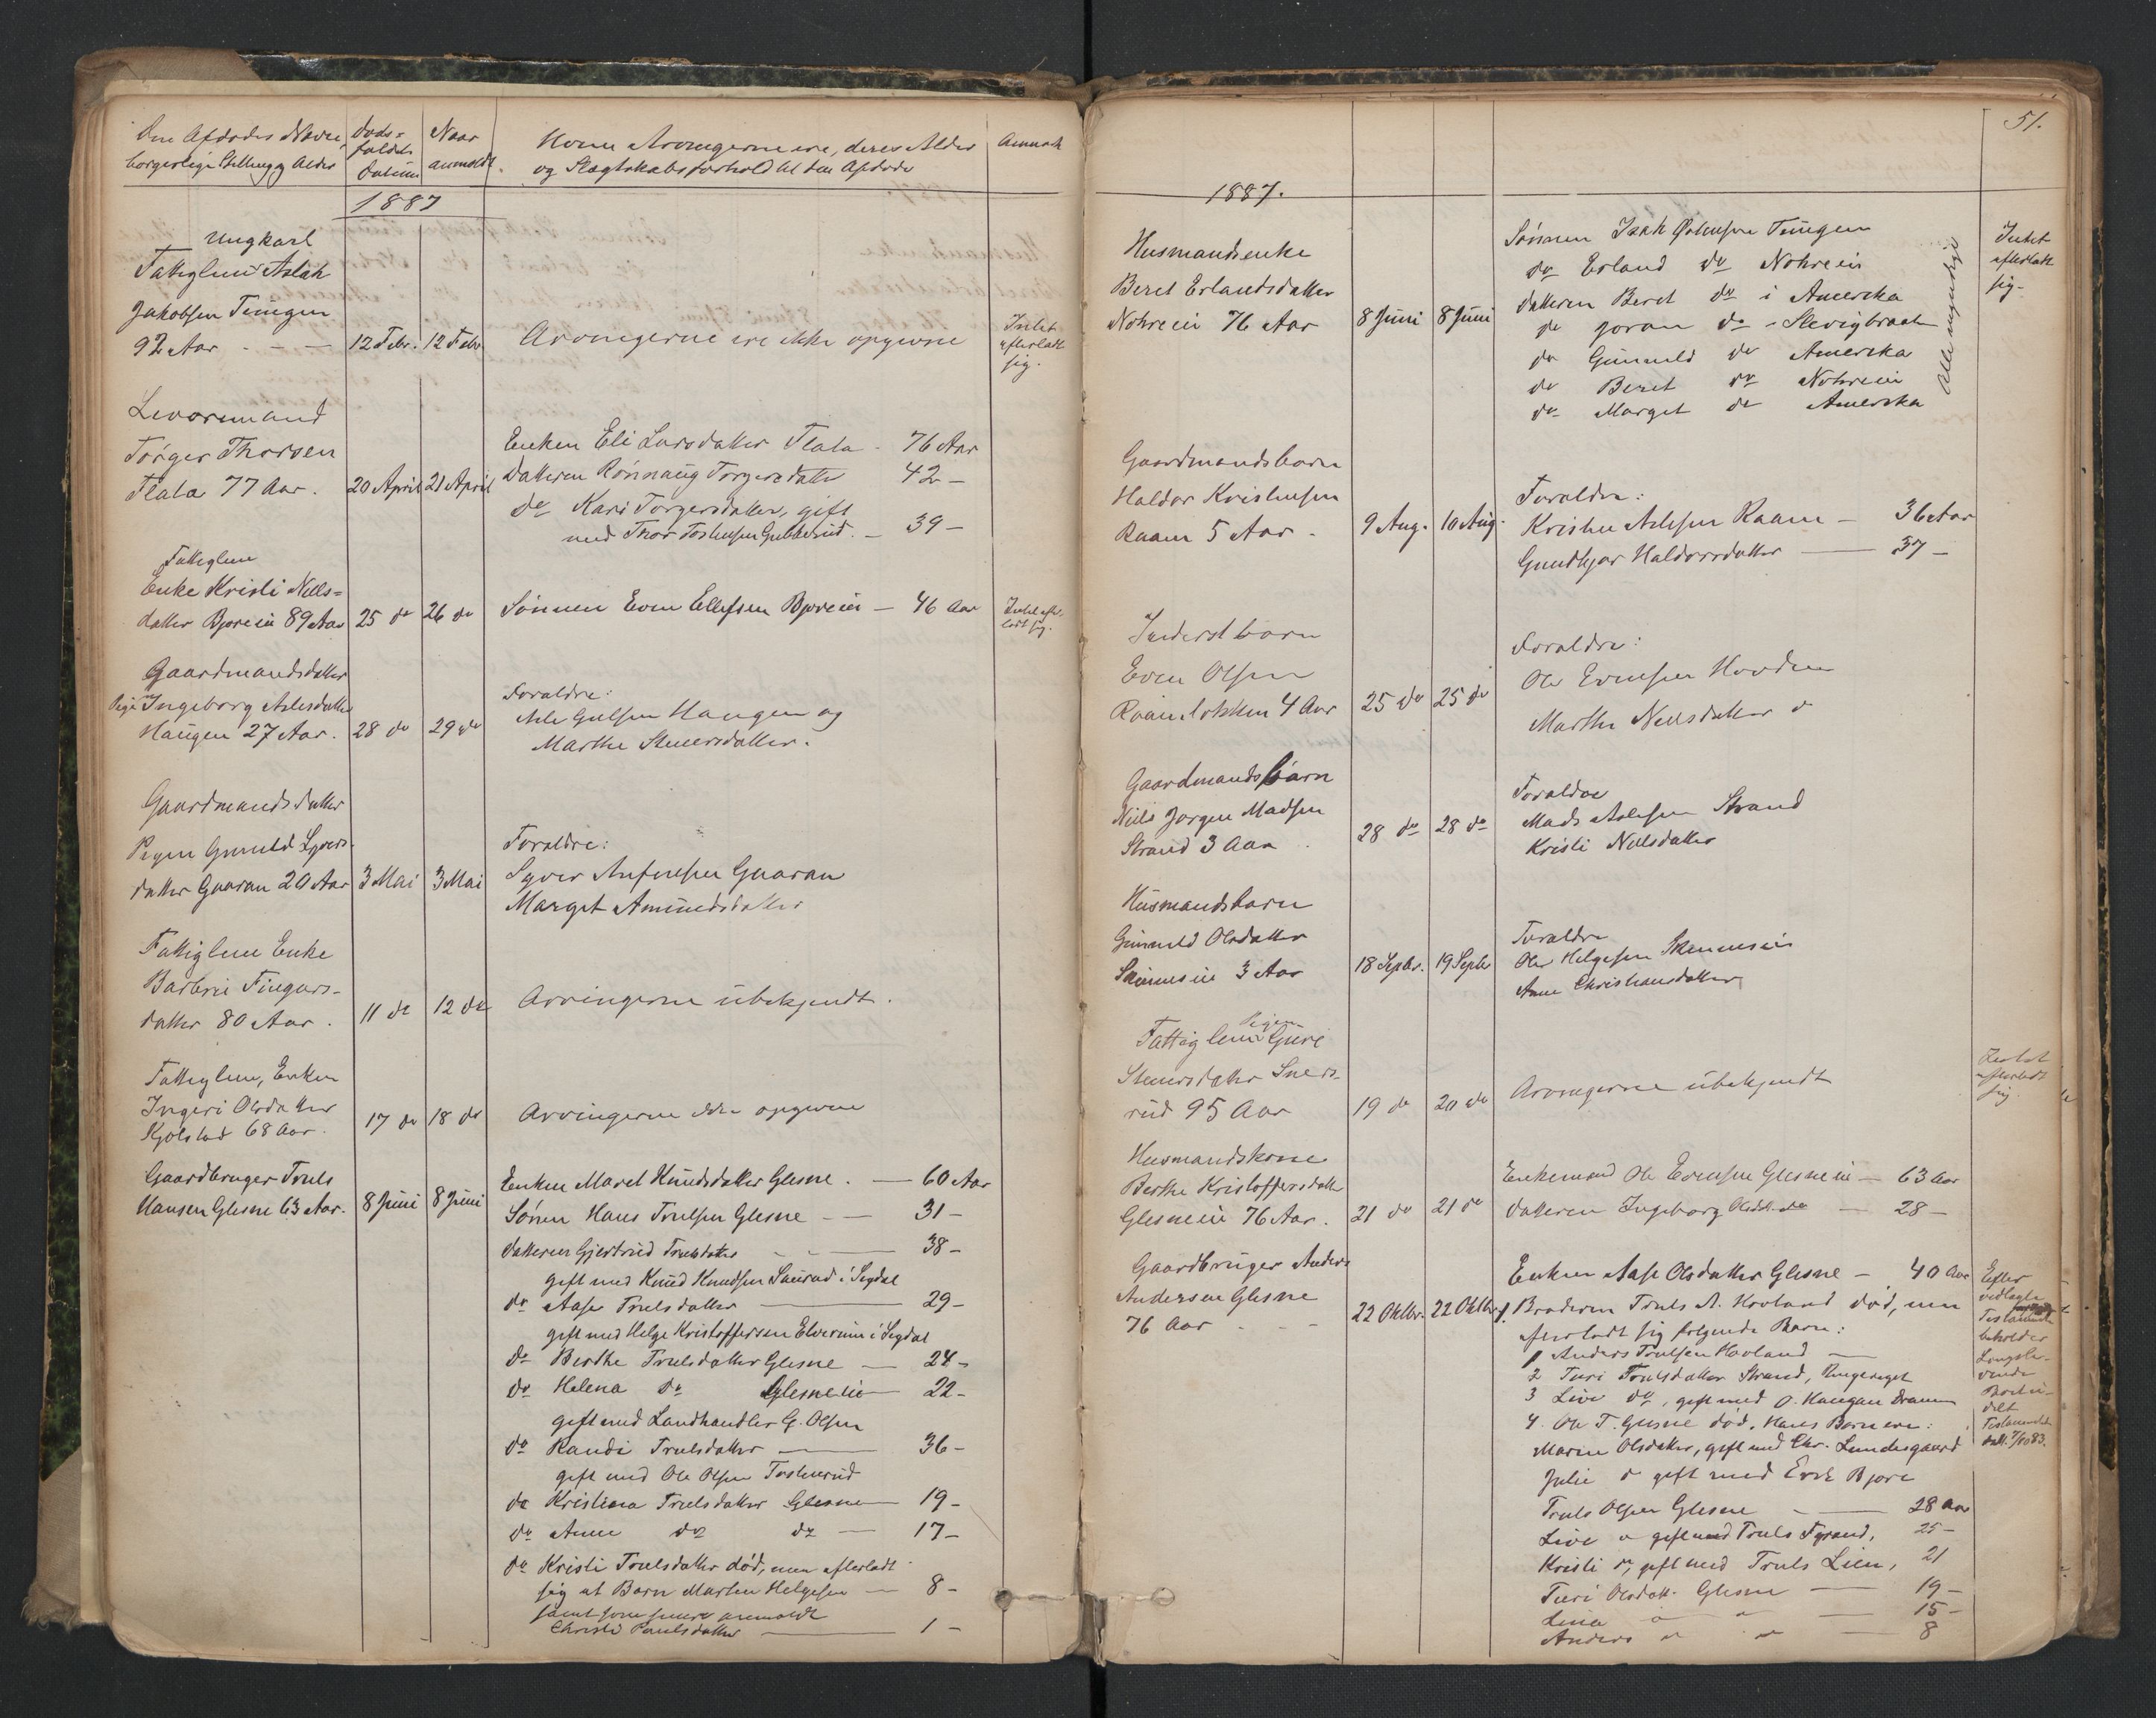 Den Afdødes Navn,
borgerlige Stilling og Alder
Døds=
faldets
Datum
Naar
anmeldt
Hvem Arvingerne ere, deres Alder
og Slægtskabsforhold til den Afdøde
Anmærk
1887
Ungkarl
Fattiglem Aslak
Jakobsen Tningen
92 Aar - - - 12 Febr. 12 Febr. Arvingerne ere ikke opgivne
Intet
efterladt
sig.
Levorsmand
Torger Thorsen
Flata 77 Aar. 20 April 21 April
Enken Eli Larsdatter Flata - 76 Aar
Datteren Rønnaug Torgersdatter 42 -
do Kari Torgersdatter, gift
med Thor Tostensen Gubberud. - 39 -
Fattiglem
Enke Kristi Niels=
datter Bjøreeie 89 Aar 25 do 26 do Sønnen Even Ellefsen Bjøreeie - 46 Aar
Intet efter-
ladt sig.
Gaardmandsdatter
Pigen Ingeborg Aslesdatter
Haugen 27 Aar. 28 do 29 do
Forældre:
Asle Gulsen Haugen og
Marthe Steenersdatter.
Gaardmandsdatter
Pigen Gunild Syvers-
datter Gaaran 20 Aar 3 Mai 3 Mai
Forældre:
Syver Anfinsen Gaaran
Marget Amundsdatter
Fattiglem Enke
Barbrie Fingars-
datter 80 Aar. 11 do 12 do Arvingerne ubekjendt.
Fattiglem, Enken
Ingeri Olsdatter
Kjølstad 68 Aar. 17 do 18 do Arvingerne ikke opgivne
Gaardbruger Truls
Hansen Glesne 63 Aar. 8 Juni 8 Juni
Enken Marel Knudsdatter Glesne. - 60 Aar
Sønnen Hans Trulsen Glesne - - 31 -
Datteren Gjertrud Trulsdatter - - 38 -
gift med Knud Knudsen Saurud i Sigdal
do Aase Trulsdatter - 29 -
gift med Helge Kristoffersen Elverum i Sigdal
do Berthe Trulsdatter Glesne - 24 -
do Helena do Glesneeie 22 -
gift med Landhandler G. Olsen
do Randi Trulsdatter - 36 -
gift med Ole Olsen Tostenrud
do Kristina Trulsdatter Glesne - 19 -
do Anne do do - 17 -
do Kristi Trulsdatter død, men efterladt
sig et Barn Marten Helgesen - 8 -
samt som senere anmeldt
Christi Paulsdatter - 1 -
51.
1887.
Husmandsenke
Beret Erlandsdatter
Nohreeie 76 Aar 8 Juni 8 Juni
Sønnen Isak Tningen
do Erland do Nohreeie
Datteren Beret do i Amerika
do Joran do - Slevigbraaten
do Gunnild do Amerika
do Beret do Nohreeie
do Marget do Amerika
Alle myndige
Intet
efterladt
sig.
Gaardmandsbarn
Haldor Kristensen
Raaen 5 Aar - 9 Aug. 10 Aug.
Forældre:
Kristen Aslesen Raaen - 36 Aar
Gundbjør Haldorsdatter - 37 -
Inderstbarn
Even Olsen
4 Aar 25 do 25 do
Forældre:
Ole Evensen Hovden
Marthe Nielsdatter do
Gaardmandsbarn
Niels Jørgen Madsen
Strand 3 Aar. 28 do 28 do
Forældre
Mads Aslesen Strand
Kristi Nielsdatter
Husmandsbarn
Gunnild Olsdatter
3 Aar 18 Septbr. 19 Septbr
Forældre
Ole Helgesen
Anne Christiansdatter
Fattiglem Pigen Guri
Steenersdatter Sners-
rud 95 Aar 19 do 20 do Arvingerne ubekjendt
Intet
efterladt
sig.
Husmandskone
Berthe Kristoffersdatter
Glesneeie 76 Aar. 21 do 21 do
Enkemand Ole Evensen Glesneeie - 63 Aar
Datteren Ingeborg Olsdtr. do - 28 -
Gaardbruger Anders
Andersen Glesne
76 Aar - - - 22 Oktbr. 22 Oktbr
Enken Aase Olsdatter Glesne - 40 Aar
1. Broderen Truls A. Hovland død, men
efterladt sig følgende Børn:
1 Anders Trulsen Hovland -
2 Turi Trulsdatter Strand, Ringeriget
3 Live do, gift med O. Haugan Dramn
4. Ole T. Glesne død. Hans Børn ere:
Marin Olsdatter, gift med Chr. Lundesgaard
Julie do gift med Erik Bjøre
Truls Olsen Glesne - 28 Aar
Live do gift med Truls Fyrand, 25 -
Kristi do, gift med Truls Lien, 21
Turi Olsdatt. Glesne - 19 -
Lina do do - 15 -
Anders do do - 8
Efter
vedlagte
Testamente
beholder
Længstle-
vende
Boet u-
delt
Testamentet
dat. 7/10 83.